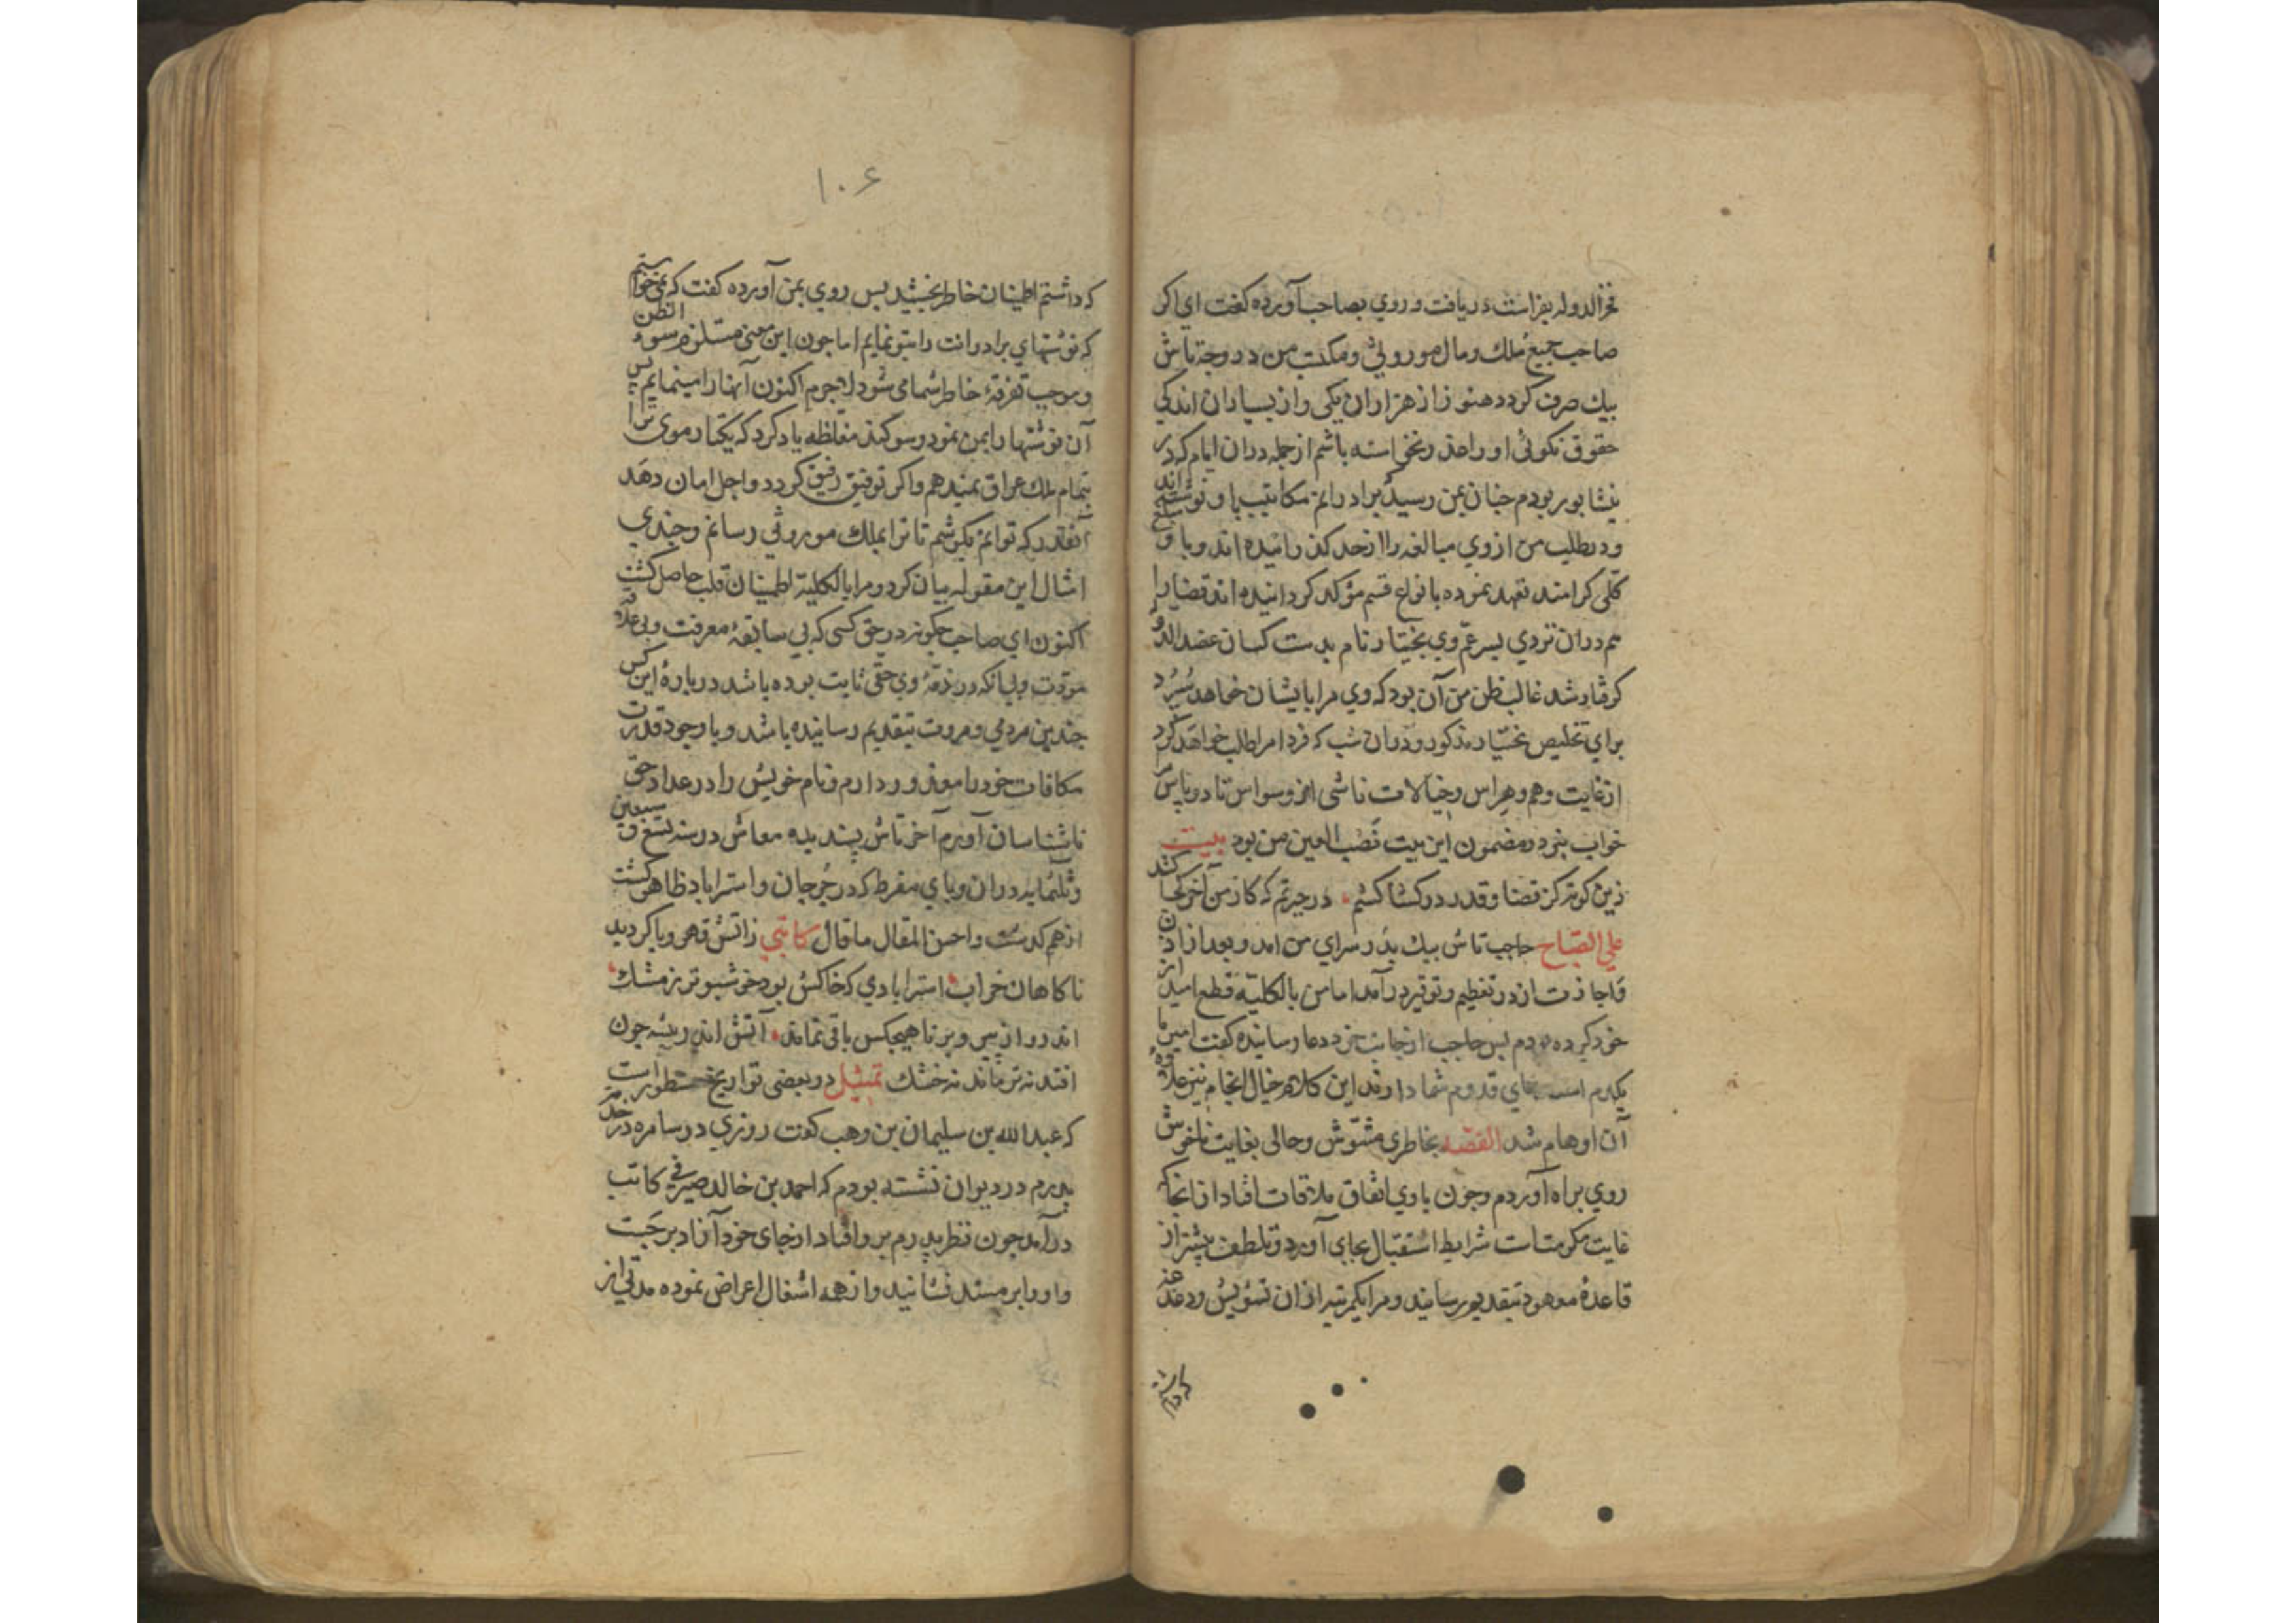 فخرالدوله بفراست دریافت و روی بصاحب آورده کفت ای اکر
صاحب جمیع ملك و مال موروثی و مکتسب من در وجه تاش
بیك صرف کردد هنوز از هزاران یکی و از بسیاران اندکی
حقوق نکوئی او را عذر نخواسته باشم از جمله دران ایام که در
نیشابور بودم چنان بمن رسید برادرانم مکاتیب باو نوشته اند
و در طلب من ازوی مبالغه را از حد کذرانیده اند و باو مبلغ
کلی کرامند تعهد نموده بانواع قسم مؤکد کردانیده اند قضا را
هم دران نزدی پسر عم وی بختیار نام بدست کسان عضد الدوله
کرفتار شد غالب ظن من آن بود که وی مرا بایشان خواهد سپرد
برای تخلیص بختیار مذکور و دران شب که فردا مرا طلب خواهد کرد
از غایت وهم و هراس و خیالات ناشی از وسواس تا دو پاس
خواب نبرد و مضمون این بیت نصب العین من بود بیت
زین کونه کز قضا و قدر در کشاکشم در حیرتم که کار من آخر کجا کشد
علی الصباح حاجب تاش بیك بدر سرای من امد و بعد از اذن
و اجازت از در تعظیم و توقیر درآمد اما من بالکلیه قطع امید از
خود کرده بودم پس حاجب از جانب خود دعا رسانیده کفت امیر ما
یکدم است بجای قدوم شما دارند این کلام خیال انجام نیز علاوه
آن اوهام شد القصه بخاطری مشوش و حالی بغایت ناخوش
روی براه آوردم و چون باوی اتفاق ملاقات افتاد از انجا که
غایت مکرمت است شرایط استقبال بجای آورد و تلطف بیشتر از
قاعدهٔ معهود بتقدیم رسانید و مرا بکمرتبه ازان تشویش و دغدغه
که داشتم
۱۰۶
که داشتم اطمینان خاطر بخشید پس روی بمن آورده کفت که نمی خواستم
که نوشتهای برادرانت را بتو نمایم اما چون این معنی مستلزم سوء الظن
و موجب تفرقهٔ خاطر شما می شود لاجرم اکنون آنها را مینمایم پس
آن نوشتها را بمن نمود و سوکند مغلظه یاد کرد که یکتا ر موی ترا
بتمام ملك عراق بمیدهم و اکر توفیق رفیق کردد و اجل امان دهد
آنقدر که توانم بکوشم تا ترا بملك موروثی رسانم و چندی
امثال این مقوله بیان کرد و مرا بالکلیة اطمینان قلب حاصل کشت
اکنون ای صاحب چکونه در حق کسی که بی سابقهٔ معرفت و بی علاقه
مودت و بی انکه در ذمهٔ وی حقی ثابت بوده باشد دربارهٔ این کس
چندین مردمی و مروت بتقدیم رسانیده باشد و با وجود قدرت
مکافات خود را معذور دارم و نام خویش را در عداد حق
ناشناسان آورم آخر تاش پسندیده معاش در سنه تسع و سبعین
و ثلثمایه دران وبای مفرط که در جرجان و استراباد ظاهر کشت
از هم کذشت و احسن المقال ما قال کاتبی زاتش قهر وبا کردید
ناکاهان خراب استرابادی که خاکش بود خوشبوتر ز مشك
اندرو از پیر و برنا هیچکس باقی نماند آتش اندر بیشه چون
افتد نه تر ماند نه خشك تمثیل در بعضی تواریخ مسطور است
که عبدالله بن سلیمان بن وهب کوید روزی در سامره در خدمت
پدرم در دیوان نشسته بودم که احمد بن خالد صیرفی کاتب
درآمد چون نظر پدرم برو افتاد از جای خود آزاد برجست
و او را بر مسند نشانید و از همه اشغال اعراض نموده مدتی از